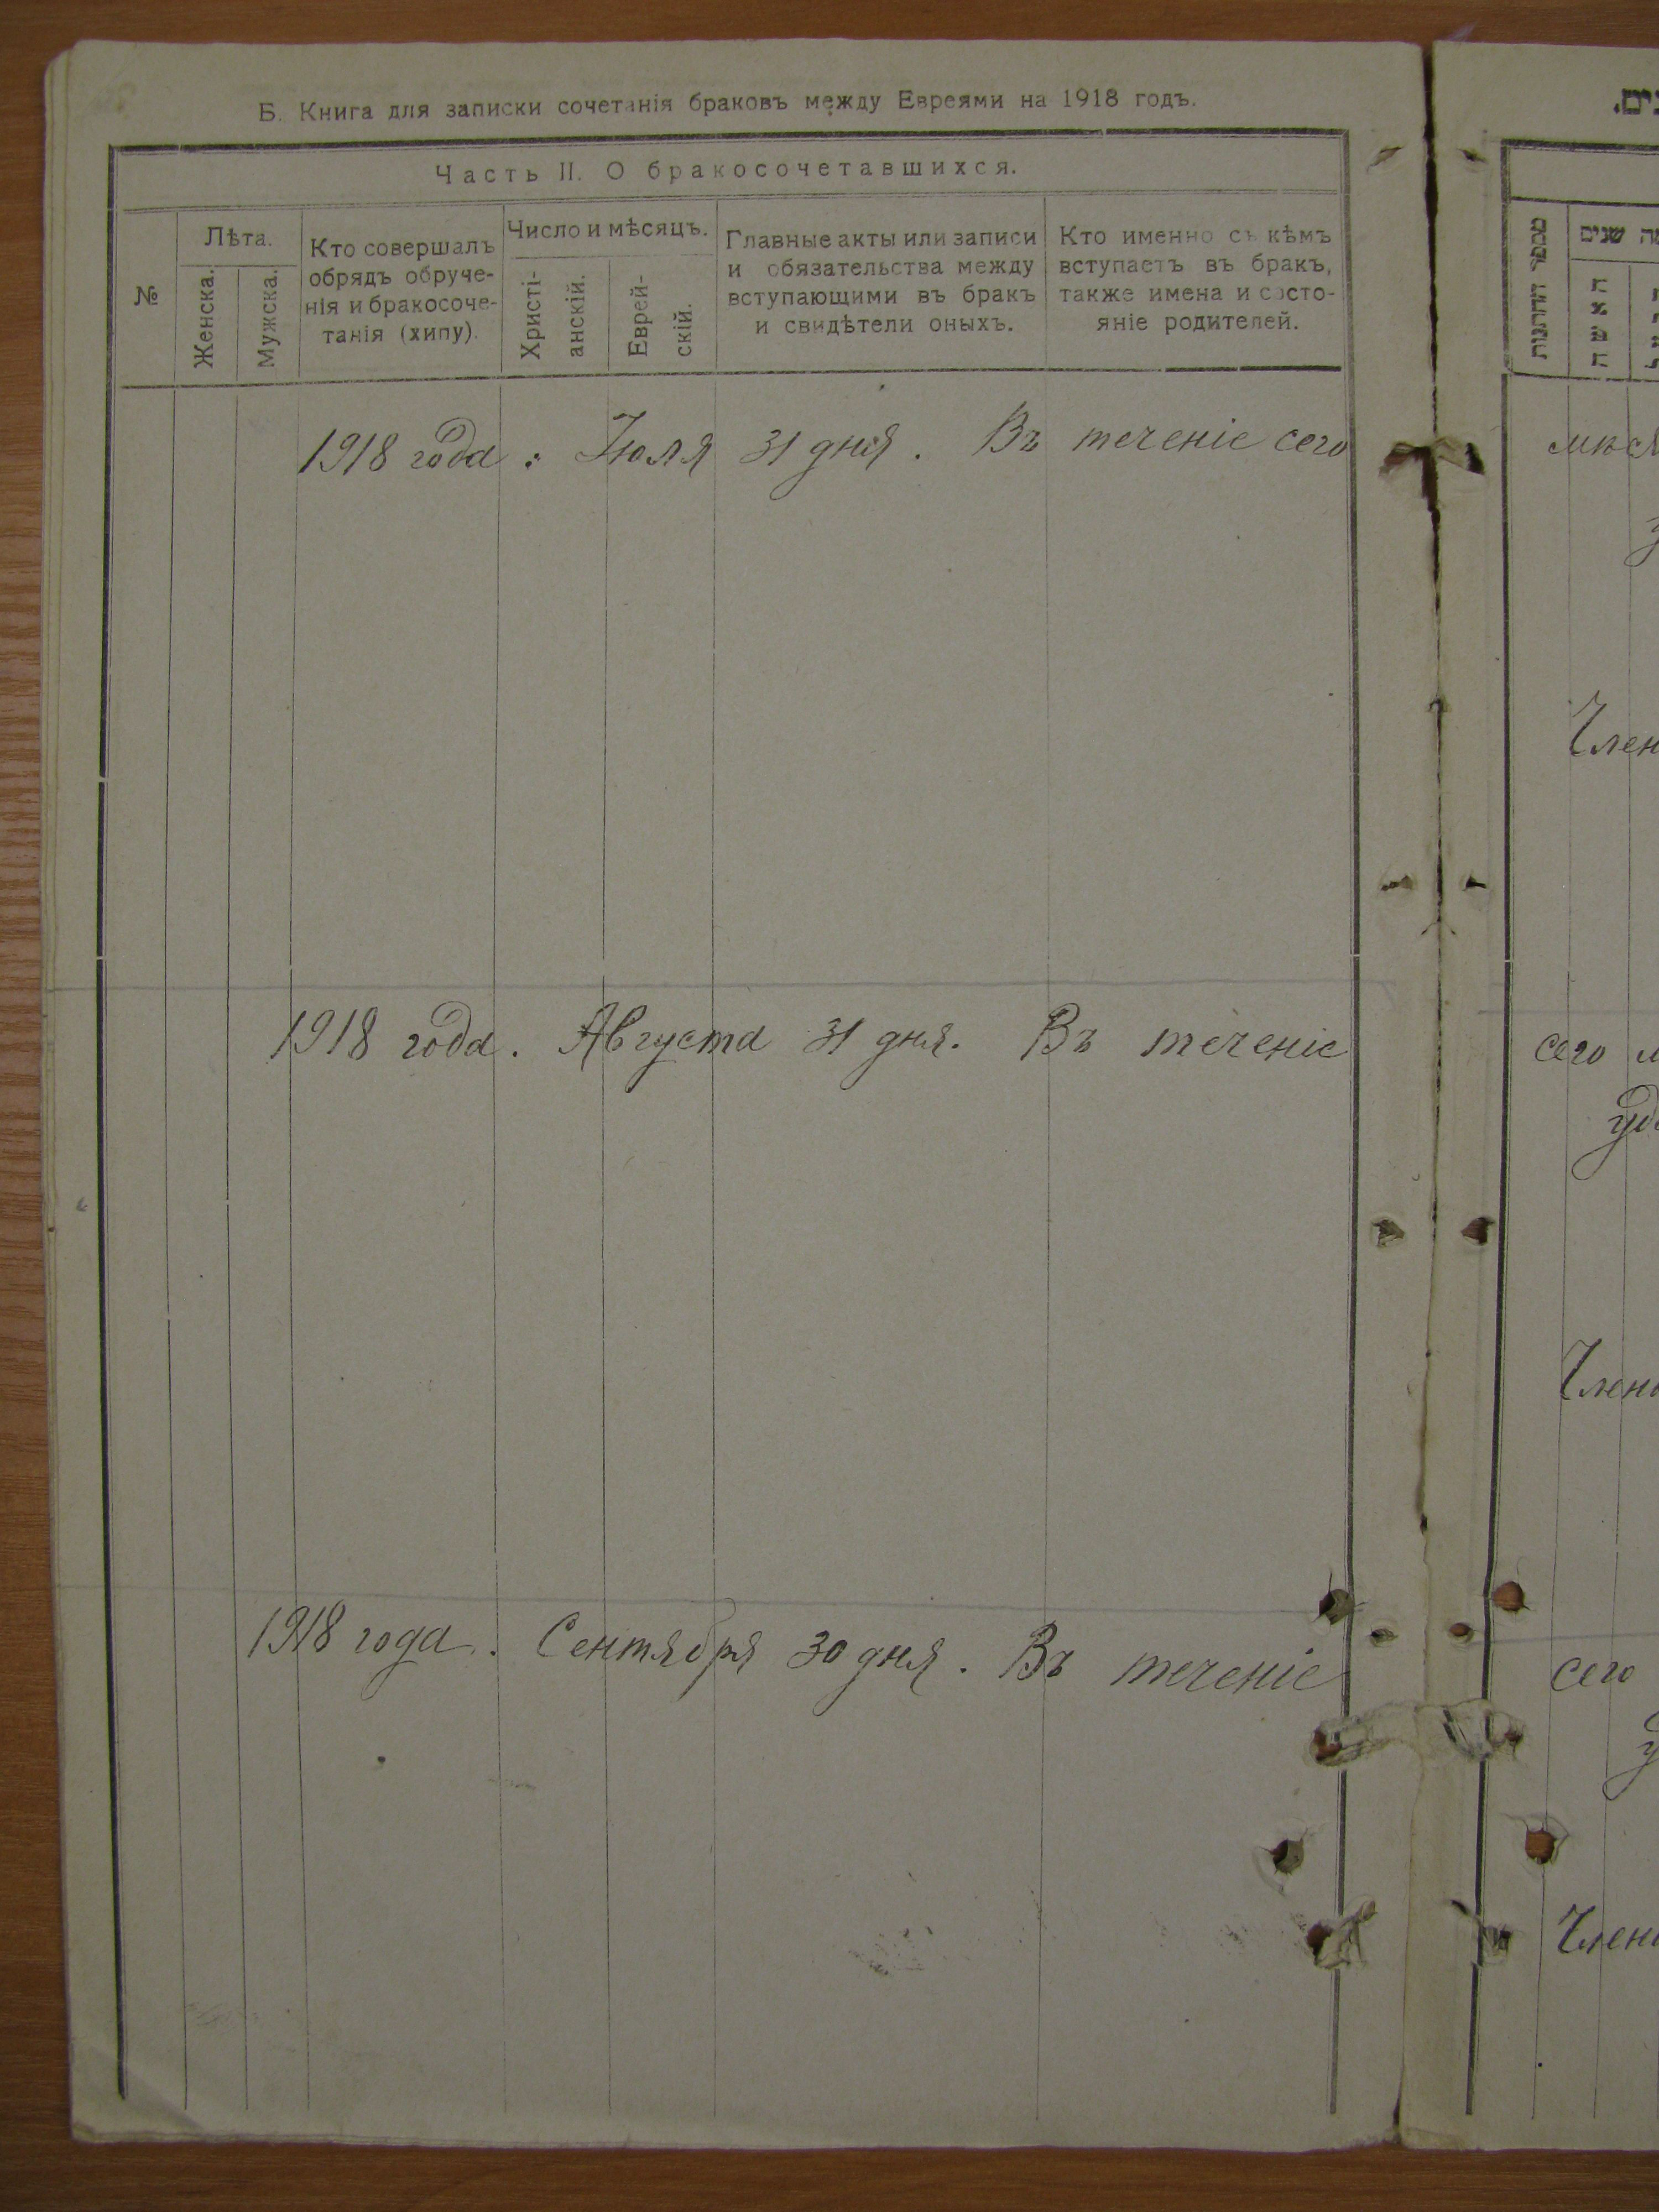 Б. Книга для записки сочетанія браковъ между Евреями на 1918 годъ.
Часть II. О бракосочетавшихся.
№
Лѣта.
Женска.
Мужска.
Кто совершалъ
обрядъ обруче-
нія и бракосоче-
танія (хипу).
Число и мѣсяцъ.
Христі-
анскій.
Еврей-
скій.
Главные акты или записи
и обязательства между
вступающими въ бракъ
и свидѣтели оныхъ.
Кто именно съ кѣмъ
вступаетъ въ бракъ,
также имена и состо-
яніе родителей.
1918 года. Іюля 31 дня. Въ теченіе сего
1918 года. Августа 31 дня. Въ теченіе
1918 года. Сентября 30 дня. Въ теченіе
שנים
האשה
сего
Член
сего